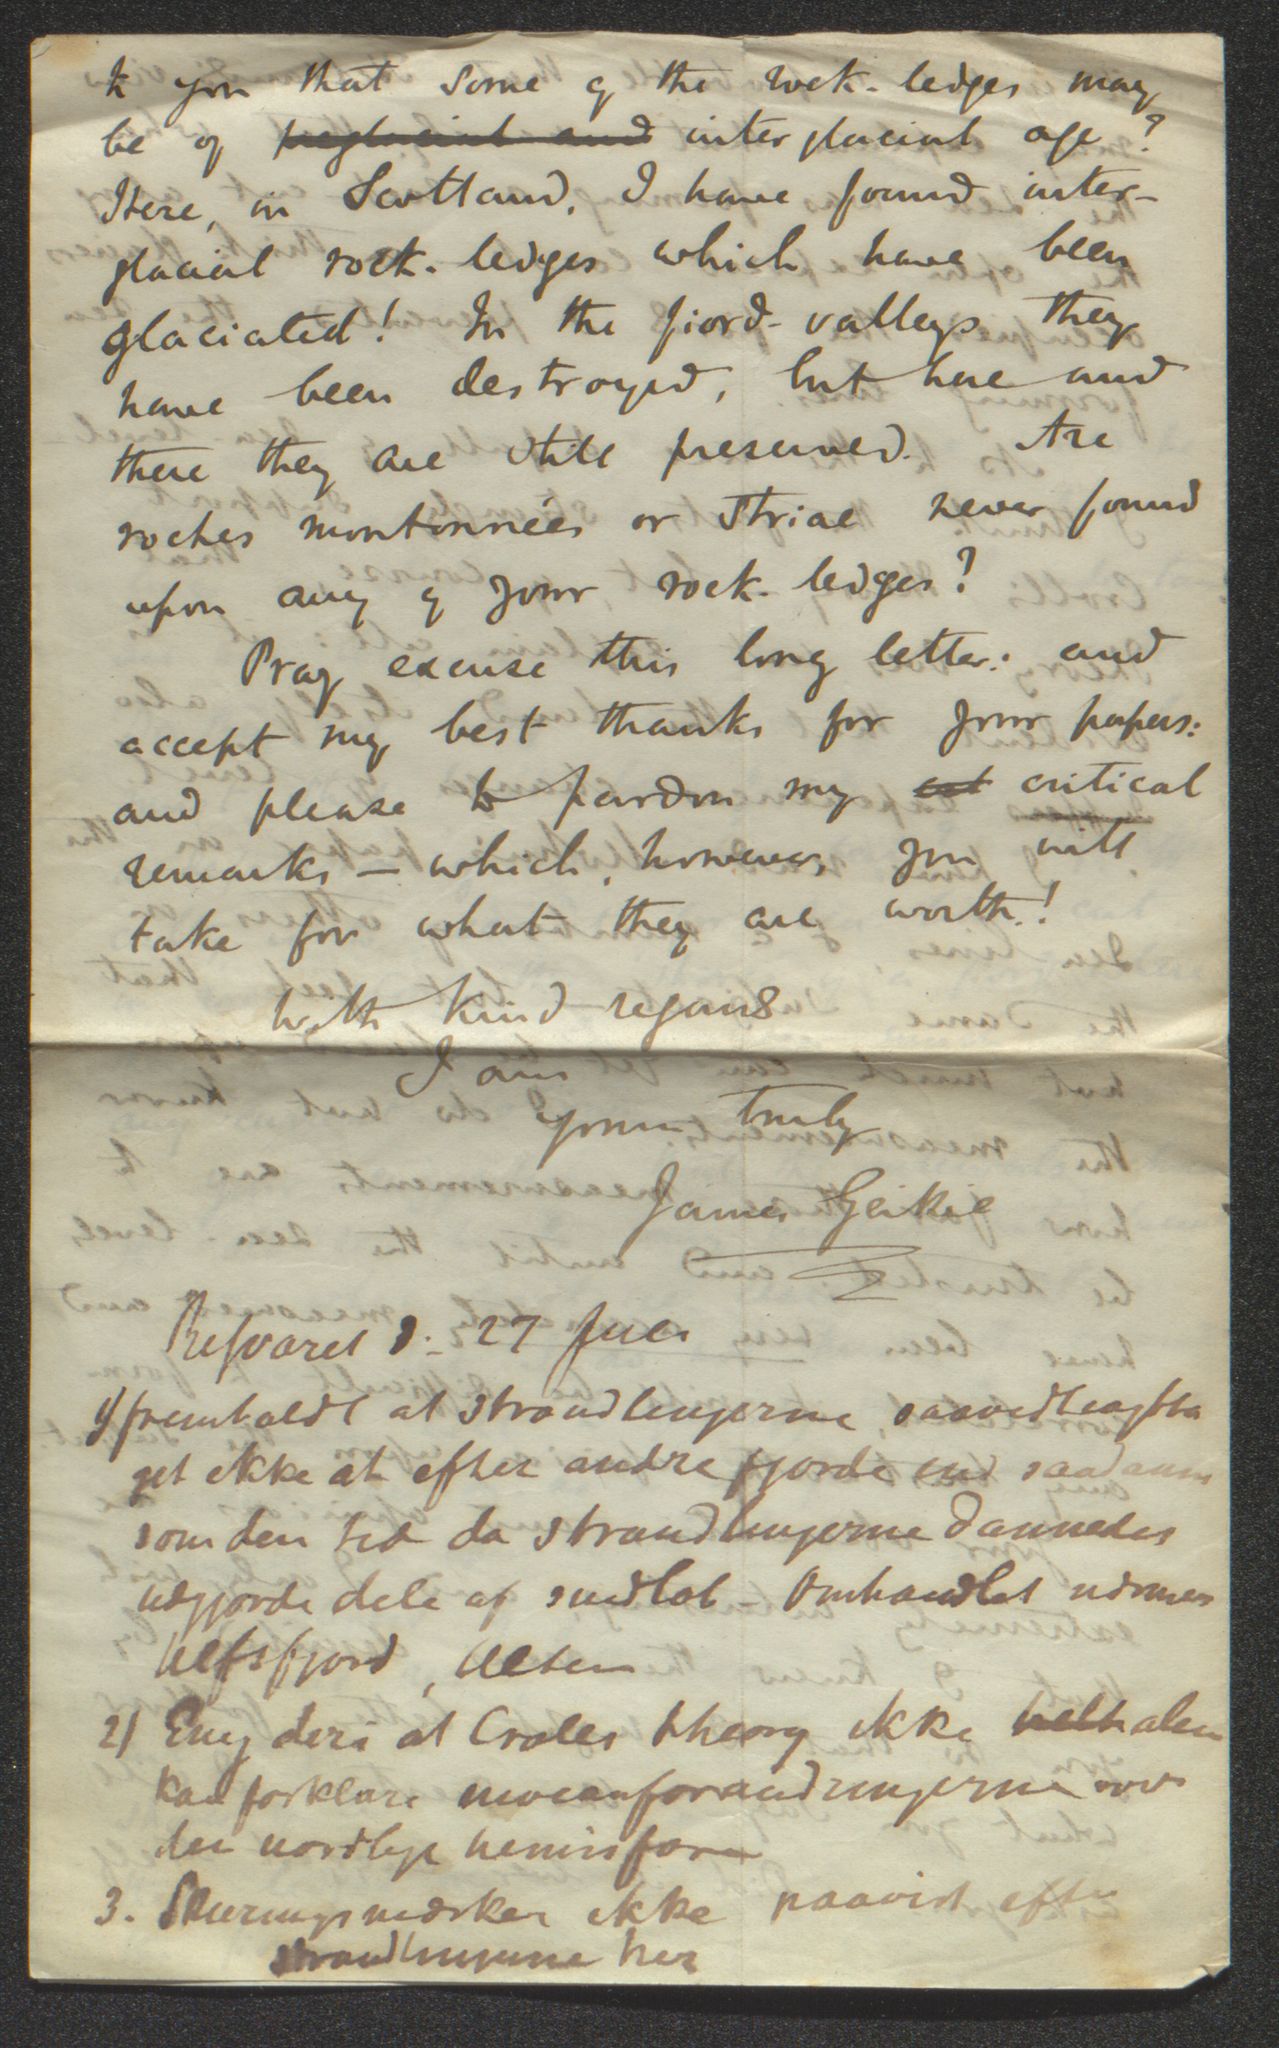 to you that some of the rock-ledges may
be of preglacial and interglacial age?
Here, in Scotland, I have found inter-
glacial rock-ledges which have been
glaciated! In the fiord-valleys they
have been destroyed, but here and
there they are still preserved. Are
roches montonnées or striae never found
upon any of your rock-ledges?
Pray excuse this long letter: and
accept my best thanks for your papers:
and please to pardon my critical
remarks — which, however, you will
take for what they are worth!
With kind regards
I am
Yours truly
James Geikie
Besvaret d. 27 Juli
1) fremholdt at strandlinjerne, saavidt
get ikke at efter andre fjorde end saadanne
som den tid da strandlinjerne dannedes
udgjorde dele af - Omhandlet nærmere
Ulfsfjord, Alten
2) Enig deri at Crolls theory ikke helt alene
kan forklare niveauforandringerne over
den nordlige hemisfære
3. Skuringsmærker ikke paavist efter
strandlinjerne her